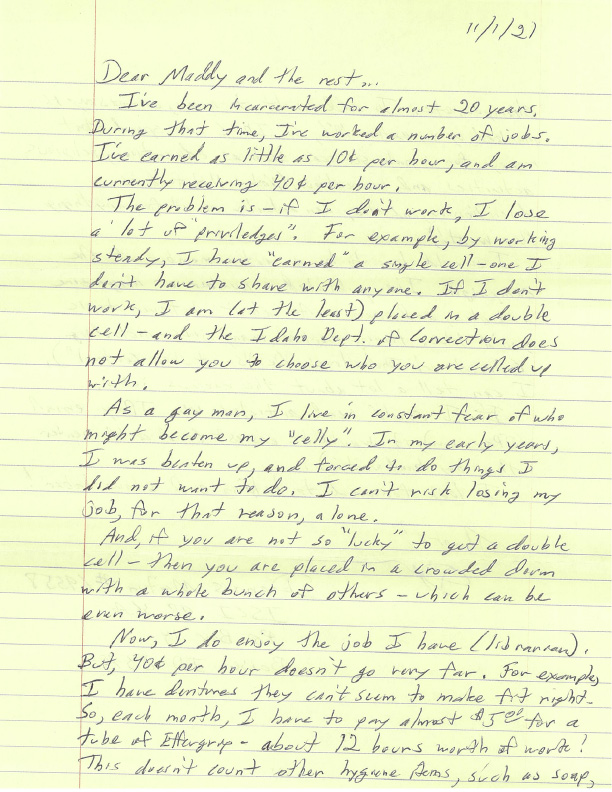 11/1/21
Dear Maddy and the rest...
I've been incarcerated for almost 20 years.
During that time, I've worked a number of jobs.
I've earned as little as 10¢ per hour, and am
currently receiving 40¢ per hour.
The problem is - if I don't work, I lose
a lot of "priviledges". For example, by working
steady, I have "earned" a single cell - one I
don't have to share with anyone. If I don't
work, I am (at the least) placed in a double
cell - and the Idaho Dept. of Correction does
not allow you to choose who you are celled up
with.
As a gay man, I live in constant fear of who
might become my "celly". In my early years,
I was beaten up, and forced to do things I
did not want to do. I can't risk losing my
job, for that reason, alone.
And, if you are not so "lucky" to get a double
cell - then you are placed in a crowded dorm
with a whole bunch of others - which can be
even worse.
Now, I do enjoy the job I have (librarian).
But, 40¢ per hour doesn't go very far. For example,
I have dentures they can't seem to make fit right.
So, each month, I have to pay almost $5.00 for a
tube of Effergrip - about 12 hours worth of work!
This doesn't count other hygiene items, such as soap,